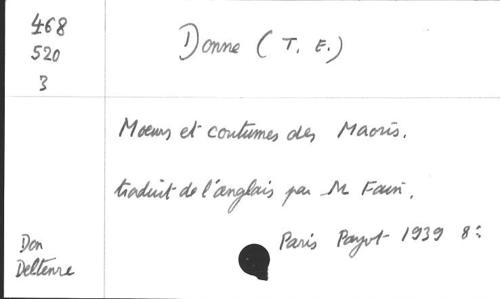 468
520
3
Donne (T. E.)
Moeurs et coutumes des Maoris.
traduit de l'anglais par M
Paris Payot 1939 8º
Don
Deltenre